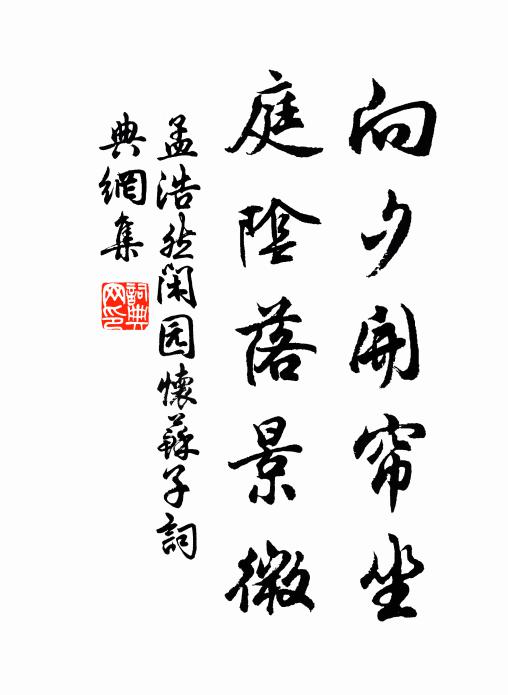 向夕開帘坐
庭陰落景微
孟浩然閑园懷蘇子詞
典網集
詞典
网印